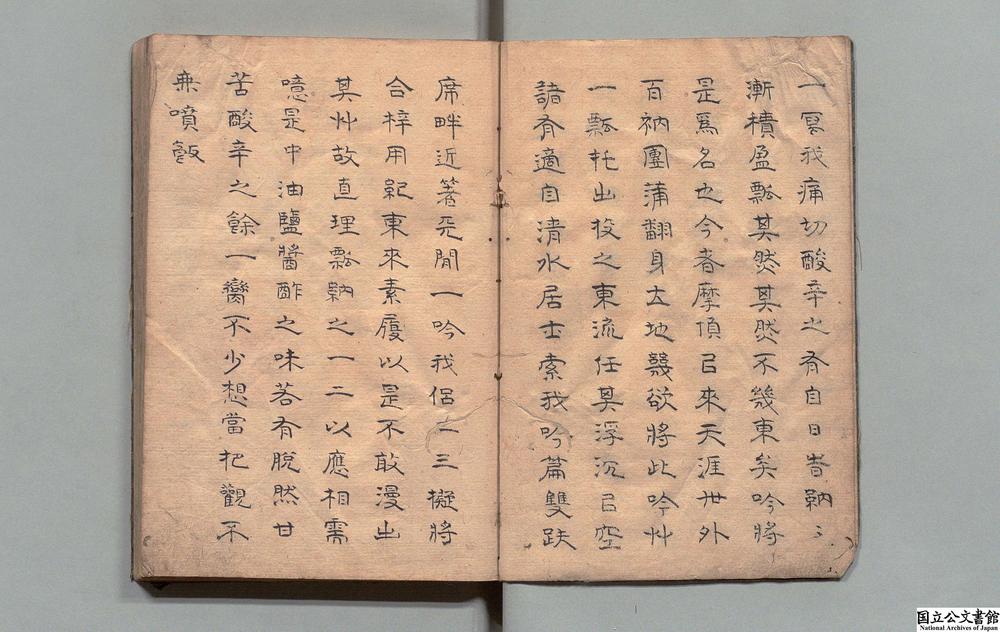 一冥我痛切酸辛之有自日昔納〻
漸積盈瓢其然其然不幾東矣吟將
是爲名也今者摩頂㠯來天涯世外
百衲團蒲翻身大地幾欲將此吟艸
一瓢托出投之東流任其浮沉㠯空
諸有適自清水居士索我吟篇雙趺
席畔近著閒一吟我侶一三擬將
合梓用紀東來素履以是不敢漫出
其艸故直理瓢納之一二以應相需
噫是中油鹽醬酢之味若有脫然甘
苦酸辛之餘一臠不少想當把觀不
無噴飯
国立公文書館
National Archives of Japan